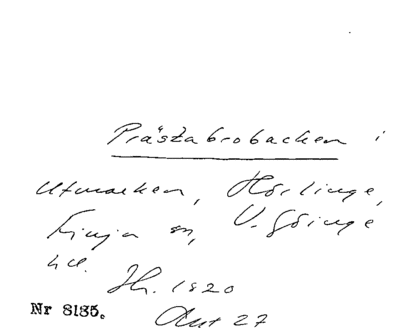 Prästabrobacken i
Utmarken, Hörlinge,
Finja sn, V. Göinge
hd. Jh. 1820
Nr 8135. Akt 27